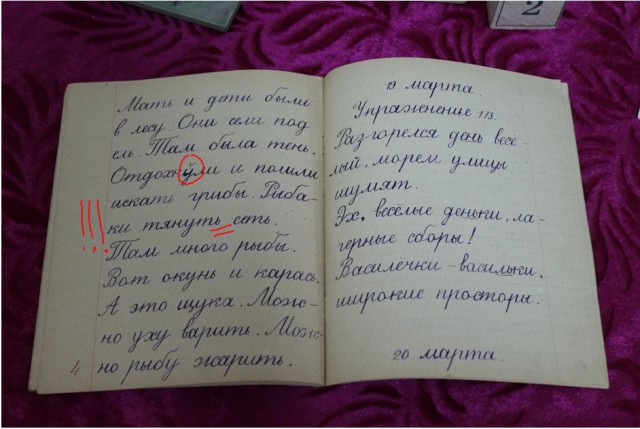 2
Мать и дети были
в лесу. Они сели под
ель. Там была тень.
Отдохнули и пошли
искать грибы. Рыба-
ки тянуть сеть.
!!!
Там много рыбы.
Вот окунь и карась.
А это щука. Мож-
но уху варить. Мож-
но рыбу жарить.
4
19 марта.
Упражнение 113.
Разгорелся день весё-
лый, морем улицы
шумят.
Эх, весёлые деньки, ла-
герные сборы!
Василёчки-васильки,
широкие просторы.
20 марта.